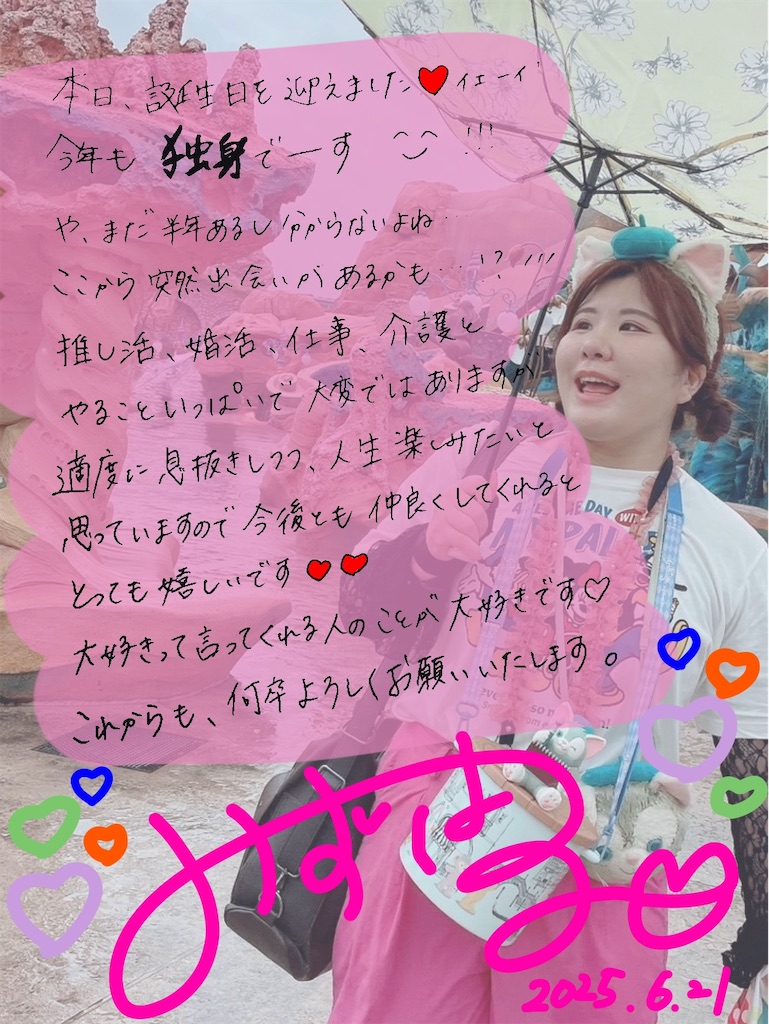 本日、誕生日を迎えました♥イエーイ
今年も 独身でーす !!!
や、まだ半年あるし分からないよね…
ここから突然出会いがあるかも…!? !!!
推し活、婚活、仕事、介護と
やることいっぱいで大変ではありますが
適度に息抜きしつつ、人生楽しみたいと
思っていますので今後とも仲良くしてくれると
とっても嬉しいです♥♥
大好きって言ってくれる人のことが大好きです♡
これからも、何卒よろしくお願いいたします。
DAY
WI
みずはる♡
2025.6.21